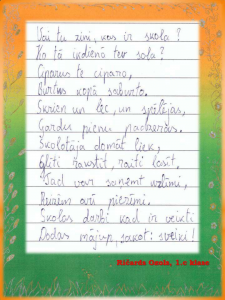 Vai tu zini, kas ir skola?
Ko tā ikdienā tev sola?
Ciparus te ciparo,
Burtus kopā saburto.
Skrien un lec, un spēlējas,
Gardu pienu padzeras.
Skolotāja domāt liek,
Glīti rakstīt, raiti lasīt,
Tad var saņemt vizīmi,
Reizēm arī piezīmi.
Skolas darbi kad ir veikti
Dodas mājup, sakot: sveiki!
Ričards Ozols, 2.c klase